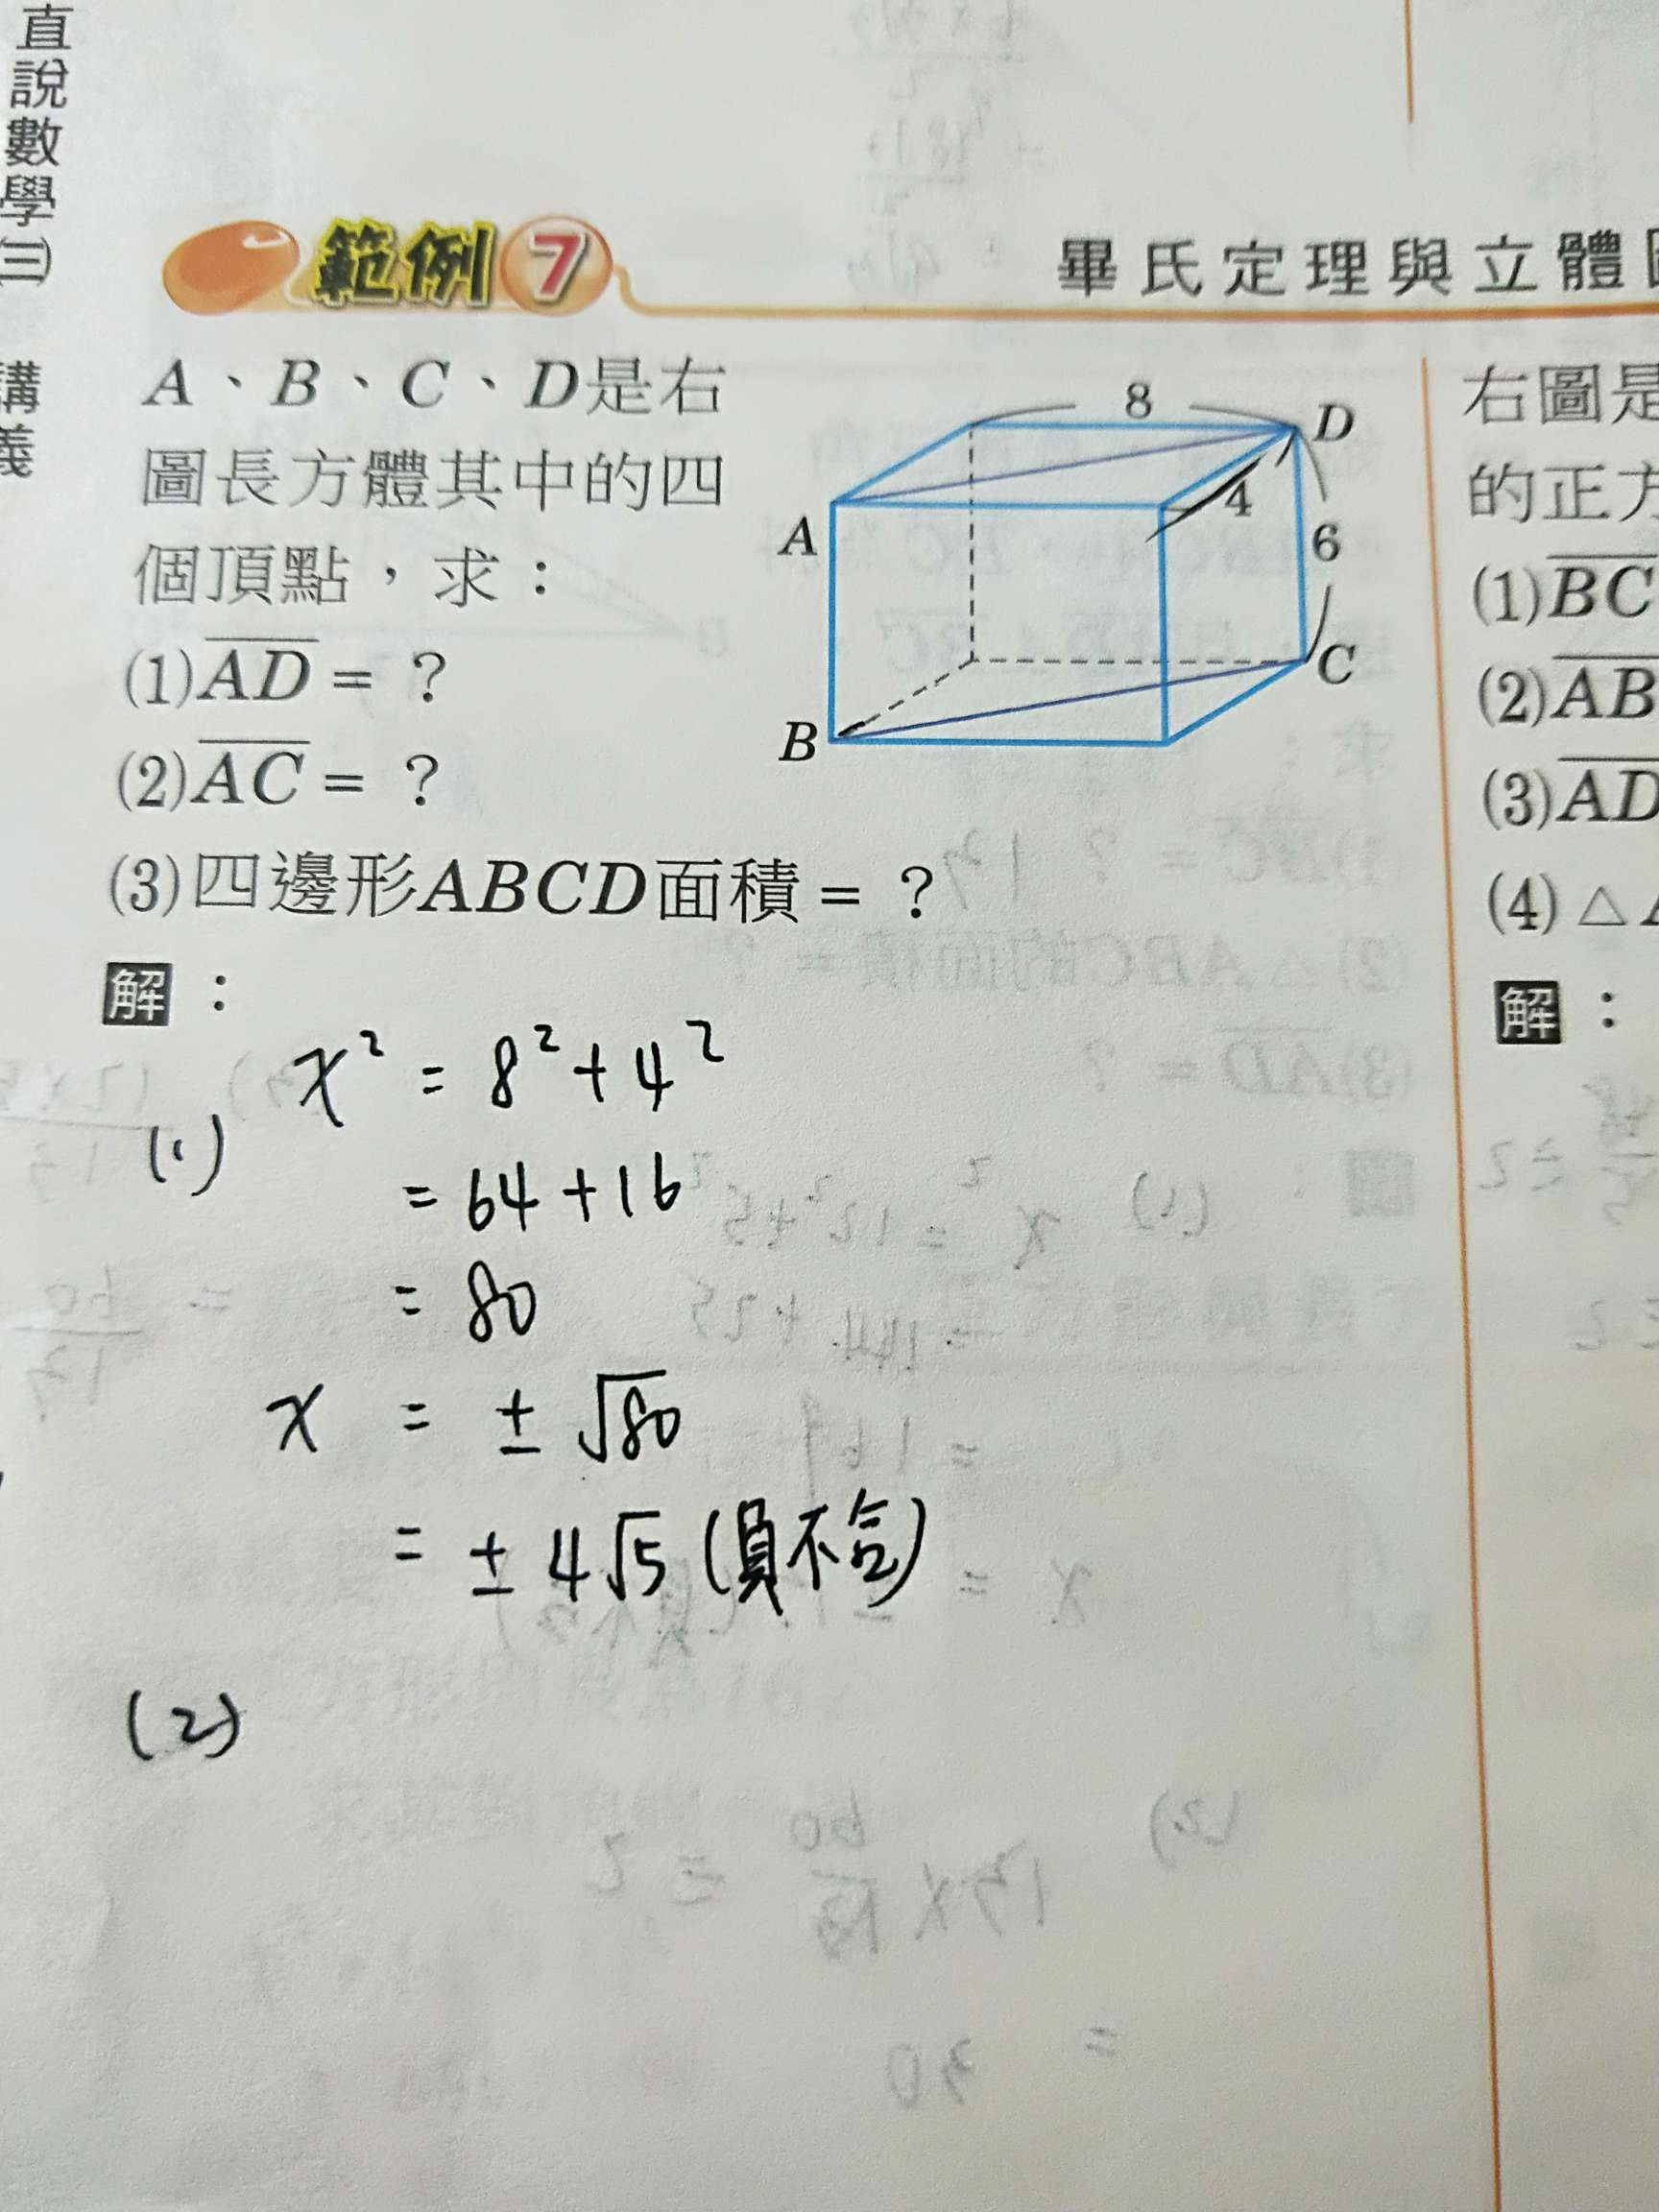 直說數學(三) 講義
範例7
畢氏定理與立體
A、B、C、D是右
圖長方體其中的四
個頂點，求：
(1)A̅D̅ = ？
(2)A̅C̅ = ？
(3)四邊形ABCD面積 = ？
8
D
4
A
6
C
B
解：
(1) x² = 8² + 4²
= 64 + 16
= 80
x = ± √80
= ± 4√5 (負不合)
(2)
右圖是
的正方
(1)B̅C̅
(2)A̅B̅
(3)A̅D̅
(4)△A
解：